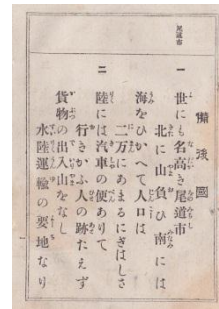 尾道市
備後國
一 世にも名高き尾道市
北に山負ひ南には
海をひかへて人口は
二万にあまるにぎはしさ
二 陸には汽車の便ありて
行きかふ人の跡たえず
貨物の出入山をなし
水陸運輸の要地なり